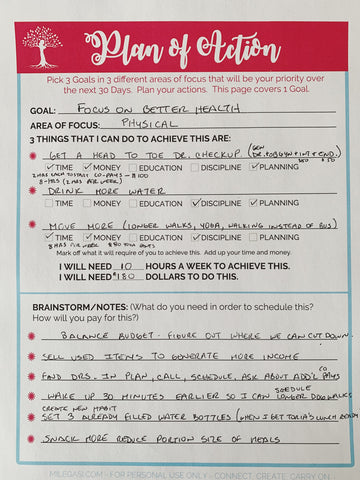 Plan of Action
Pick 3 Goals in 3 different areas of focus that will be your priority over
the next 30 Days. Plan your actions. This page covers 1 Goal.
GOAL: FOCUS ON BETTER HEALTH
AREA OF FOCUS: PHYSICAL
3 THINGS THAT I CAN DO TO ACHIEVE THIS ARE:
GET A HEAD TO TOE DR. CHECKUP (GEN DR. + OBGYN + INT + END.)
$80 $50
TIME MONEY EDUCATION DISCIPLINE PLANNING
2 HRS EACH TO START CO-PAYS - $100
8-HRS (2 HRS PER WEEK)
DRINK MORE WATER
TIME MONEY EDUCATION DISCIPLINE PLANNING
MOVE MORE (LONGER WALKS, YOGA, WALKING INSTEAD OF BUS)
TIME MONEY EDUCATION DISCIPLINE PLANNING
8 HRS PER WEEK $80 YOGA
Mark off what it will require of you to achieve this. Add up your time and money.
I WILL NEED 10 HOURS A WEEK TO ACHIEVE THIS.
I WILL NEED $180 DOLLARS TO DO THIS.
BRAINSTORM/NOTES: (What do you need in order to schedule this?
How will you pay for this?)
BALANCE BUDGET - FIGURE OUT WHERE WE CAN CUT DOWN.
SELL USED ITEMS TO GENERATE MORE INCOME
FIND DRS. IN PLAN, CALL, SCHEDULE. ASK ABOUT ADD'L CO PAYS
WAKE UP 30 MINUTES EARLIER SO I CAN SCHEDULE LONGER DOG WALKS
CREATE NEW HABIT
SET 3 ALREADY FILLED WATER BOTTLES (WHEN I GET TORIA'S LUNCH READY
SNACK MORE REDUCE PORTION SIZE OF MEALS
MILEGASI.COM - FOR PERSONAL USE ONLY - CONNECT. CREATE. CARRY ON